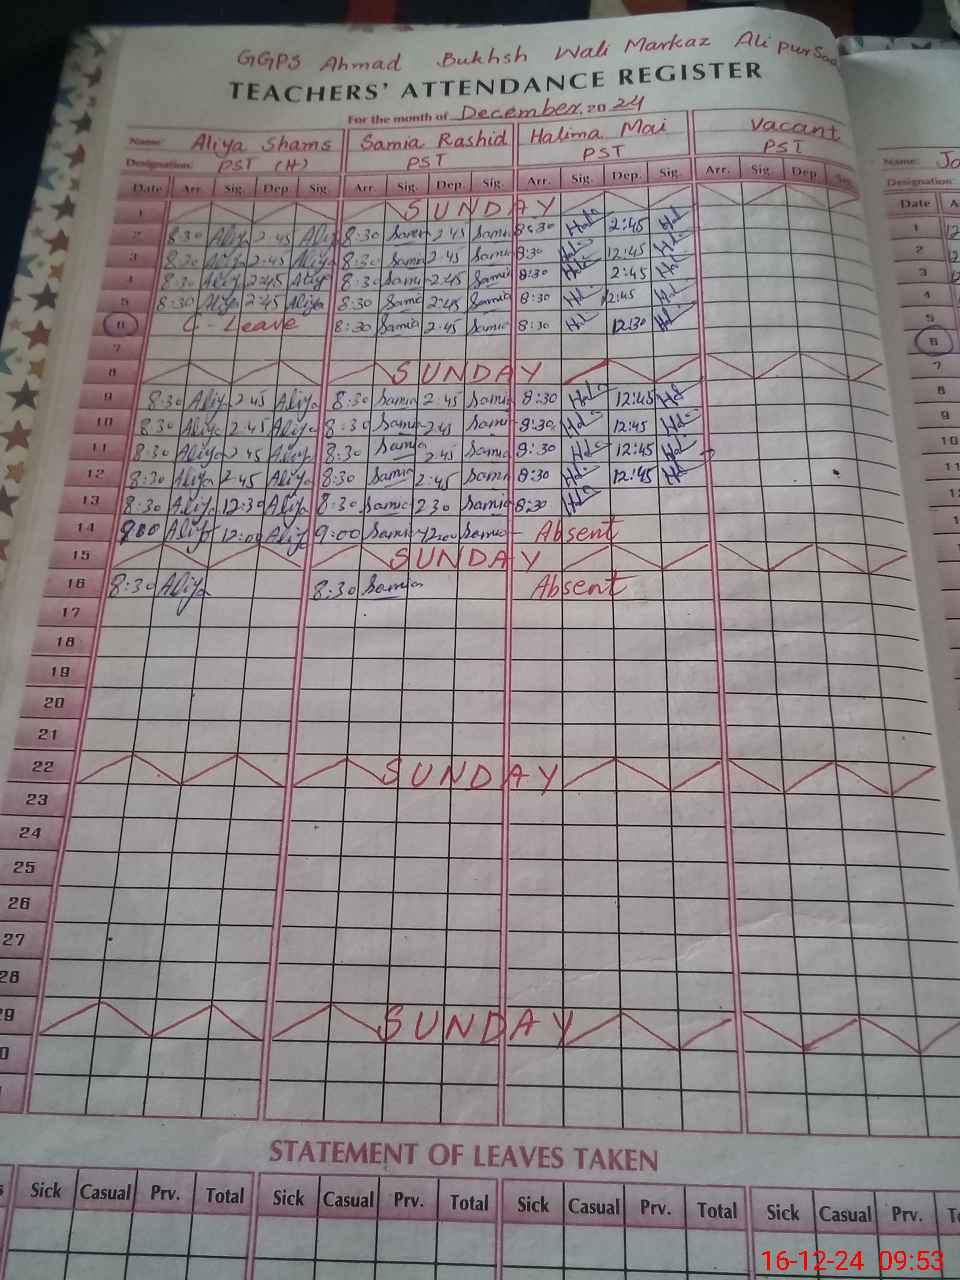 GGPS Ahmad Bukhsh Wali Markaz Ali pur Sada
TEACHERS' ATTENDANCE REGISTER
For the month of December, 2024
Name: Aliya Shams Samia Rashid Halima Mai Vacant Name: Jo
Designation: PST (H) PST PST PST Designation
Date Arr. Sig. Dep. Sig. Arr. Sig. Dep. Sig. Arr. Sig. Dep. Sig. Arr. Sig. Dep. Sig. Date A
1 SUNDAY 1
2 8:30 Aliya 2:45 Aliya 8:30 Samia 2:45 Samia 8:30 2:45 2
3 8:30 Aliya 2:45 Aliya 8:30 Samia 2:45 Samia 8:30 12:45 3
4 8:30 Aliya 2:45 Aliya 8:30 Samia 2:45 Samia 8:30 2:45 4
5 8:30 Aliya 2:45 Aliya 8:30 Samia 2:45 Samia 8:30 12:45 5
6 C-Leave 8:30 Samia 2:45 Samia 8:30 12:30 6
7 7
8 SUNDAY 8
9 8:30 Aliya 2:45 Aliya 8:30 Samia 2:45 Samia 8:30 12:45 9
10 8:30 Aliya 2:45 Aliya 8:30 Samia 2:45 Samia 8:30 12:45 10
11 8:30 Aliya 2:45 Aliya 8:30 Samia 2:45 Samia 8:30 12:45 11
12 8:30 Aliya 2:45 Aliya 8:30 Samia 2:45 Samia 8:30 12:45 12
13 8:30 Aliya 12:30 Aliya 8:30 Samia 2:30 Samia 8:30 13
14 9:00 Aliya 12:00 Aliya 9:00 Samia 12:00 Samia Absent 14
15 SUNDAY 15
16 8:30 Aliya 8:30 Samia Absent 16
17 17
18 18
19 19
20 20
21
22 SUNDAY
23
24
25
26
27
28
29 SUNDAY
STATEMENT OF LEAVES TAKEN
Sick Casual Prv. Total Sick Casual Prv. Total Sick Casual Prv. Total Sick Casual Prv.
16-12-24 09:53